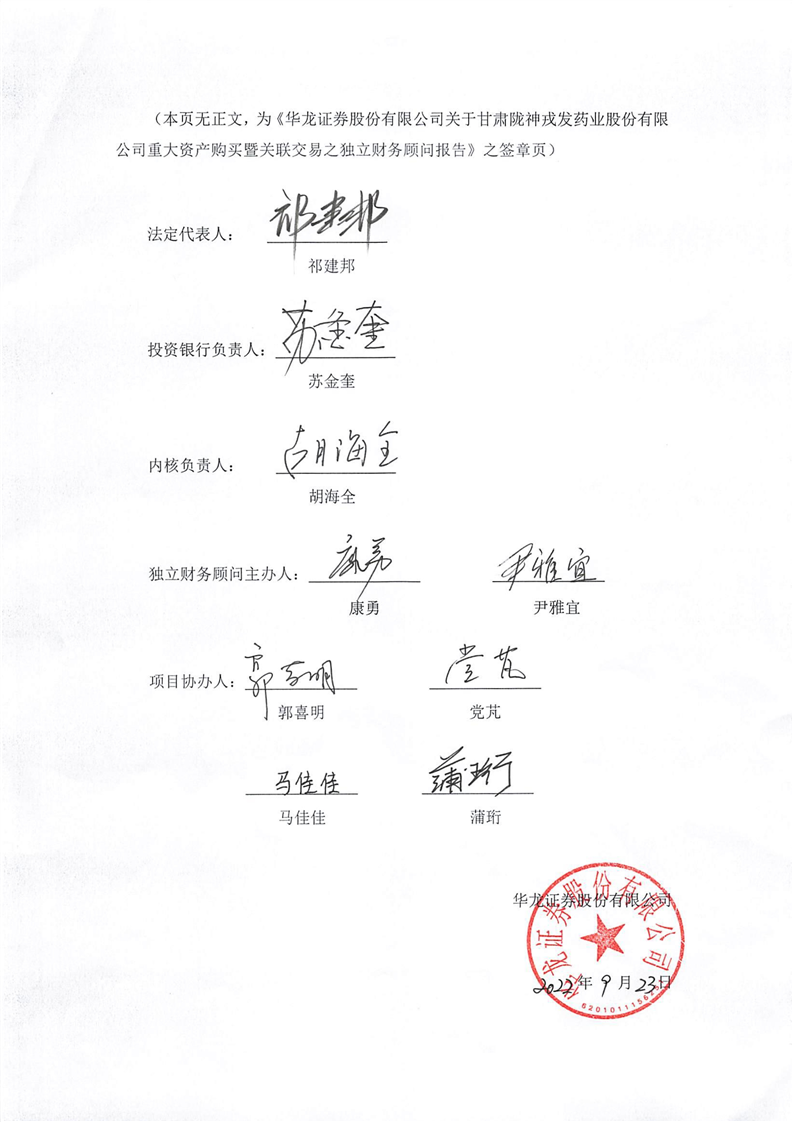 （本页无正文，为《华龙证券股份有限公司关于甘肃陇神戎发药业股份有限
公司重大资产购买暨关联交易之独立财务顾问报告》之签章页）
法定代表人： 祁建邦
祁建邦
投资银行负责人： 苏金奎
苏金奎
内核负责人： 胡海全
胡海全
独立财务顾问主办人： 康勇 尹雅宜
康勇 尹雅宜
项目协办人： 郭喜明 党芃
郭喜明 党芃
马佳佳 蒲珩
马佳佳 蒲珩
华龙证券股份有限公司
华龙证券股份有限公司
2022年9月23日